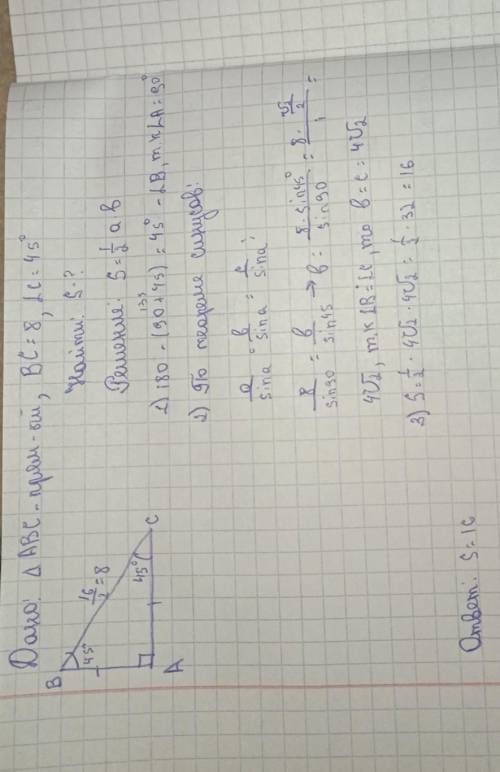 Дано: △ABC - прям-ый, BC = 8, ∠C = 45°
Найти: S - ?
Решение: S = 1/2 a·b
1) 180 - (90 + 45) = 45° - ∠B, т.к ∠A = 90°
135
2) По теореме синусов:
a/sin a = b/sin a = c/sin a;
8/sin 90 = b/sin 45 → b = 8·sin 45°/sin 90 = 8·√2/2 / 1 =
4√2, т.к ∠B = ∠C, то b = c = 4√2
3) S = 1/2 · 4√2 · 4√2 = 1/2 · 32 = 16
B
45°
16/2 = 8
45°
C
A
Ответ: S = 16